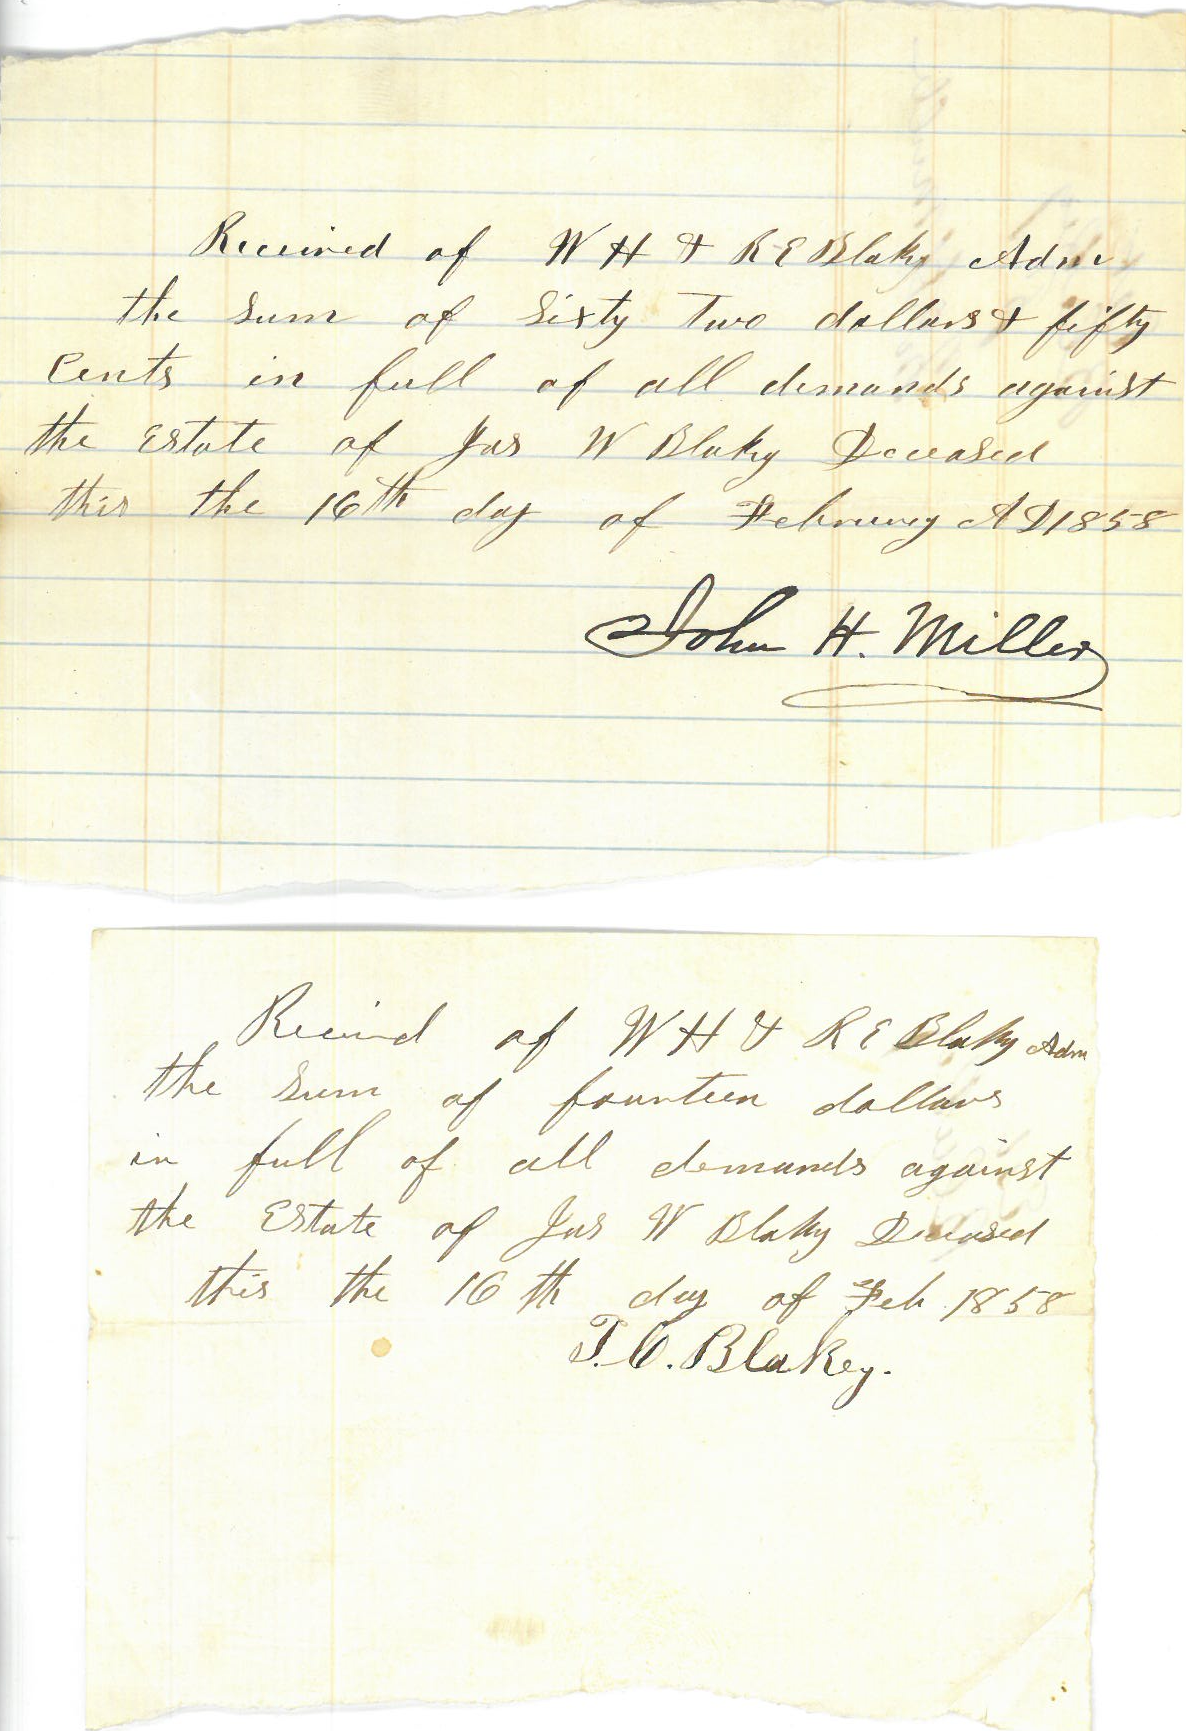 Received of W H & R E Blaky Adm
the Sum of Sixty Two dollars & fifty
Cents in full of all demands against
the Estate of Jas W Blaky Deceased
this the 16th day of February AD 1858
John H. Miller
Received of W H & R E Blaky Adm
the Sum of fourteen dollars
in full of all demands against
the Estate of Jas W Blaky Deceased
this the 16th day of Feb 1858
T. C. Blakey.